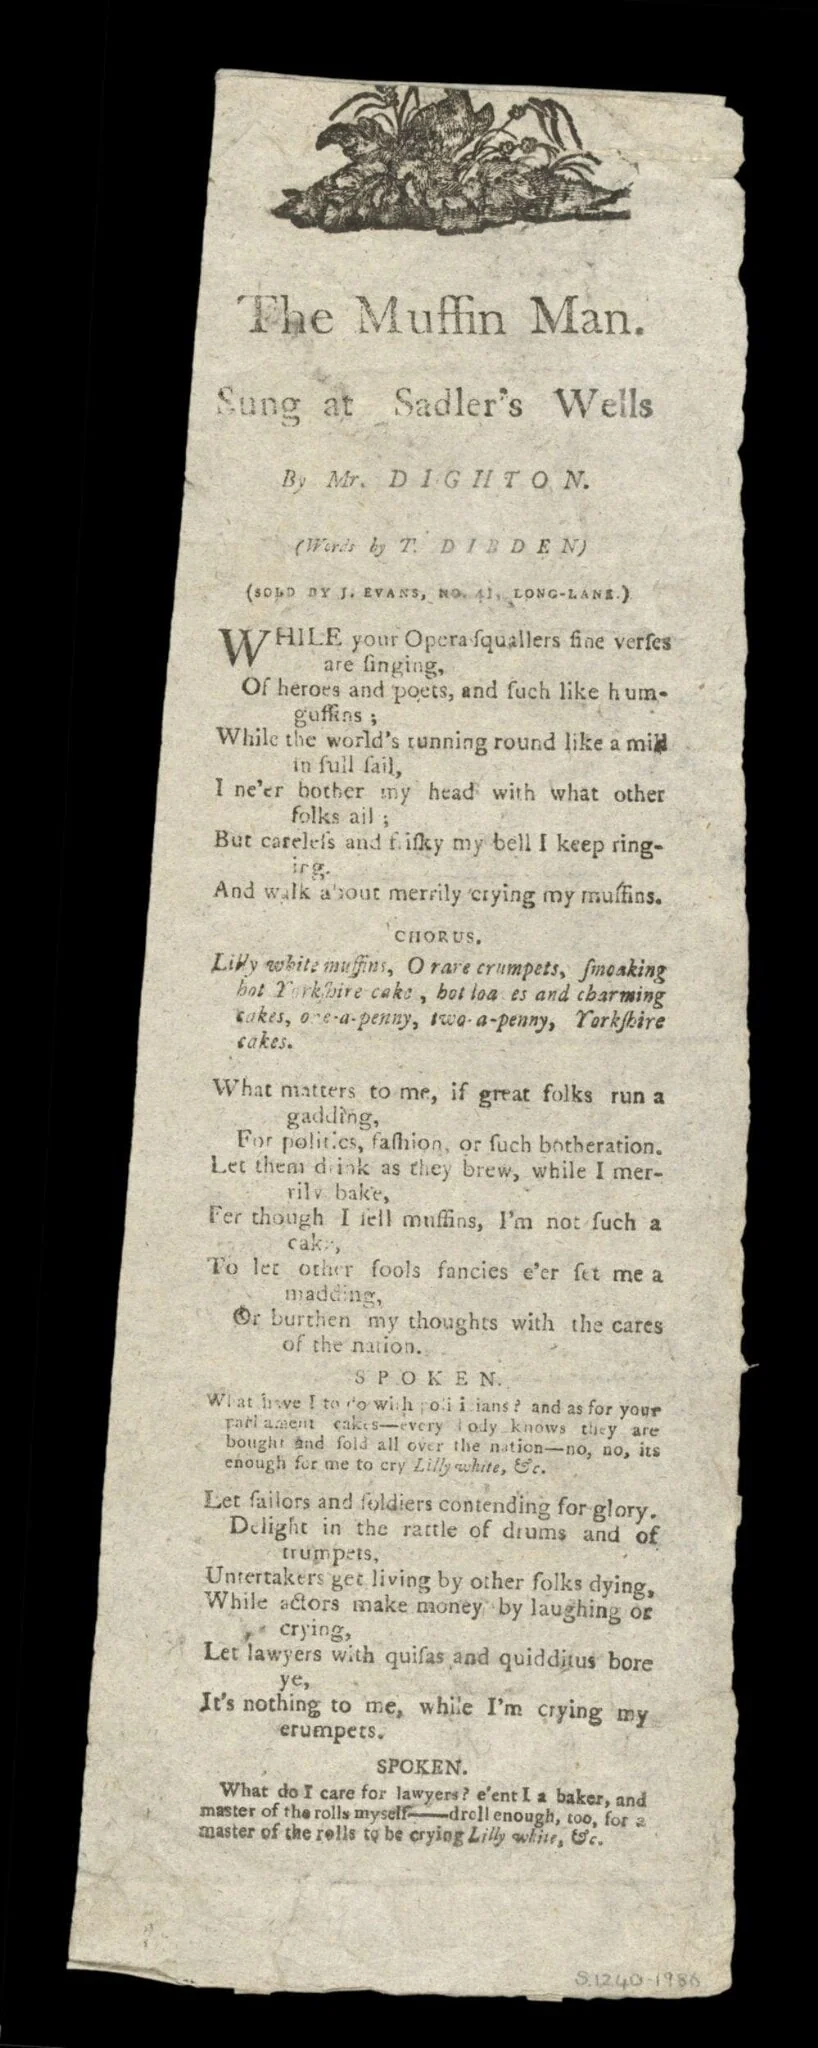 The Muffin Man.
Sung at Sadler's Wells
By Mr. DIGHTON.
(Words by T. DIBDEN)
(SOLD BY J. EVANS, NO. 41, LONG-LANE.)
WHILE your Opera ſquallers fine verſes
are ſinging,
Of heroes and poets, and ſuch like hum-
guffins ;
While the world's running round like a mill
in full ſail,
I ne'er bother my head with what other
folks ail ;
But careleſs and friſky my bell I keep ring-
ing.
And walk about merrily crying my muffins.
CHORUS.
Lilly white muffins, O rare crumpets, ſmoaking
hot Yorkſhire cake, hot loaves and charming
cakes, one-a-penny, two-a-penny, Yorkſhire
cakes.
What matters to me, if great folks run a
gadding,
For politics, faſhion, or ſuch botheration.
Let them drink as they brew, while I mer-
rily bake,
Fer though I ſell muffins, I'm not ſuch a
cake,
To let other fools fancies e'er ſet me a
madding,
Or burthen my thoughts with the cares
of the nation.
SPOKEN.
What have I to do with politicians? and as for your
parliament cakes—every body knows they are
bought and ſold all over the nation—no, no, its
enough for me to cry Lilly white, &c.
Let ſailors and ſoldiers contending for glory.
Delight in the rattle of drums and of
trumpets,
Untertakers get living by other folks dying,
While actors make money by laughing or
crying,
Let lawyers with quiſas and quidditus bore
ye,
It's nothing to me, while I'm crying my
erumpets.
SPOKEN.
What do I care for lawyers? e'ent I a baker, and
master of the rolls myself——droll enough, too, for a
master of the rolls to be crying Lilly white, &c.
S.1240-1986